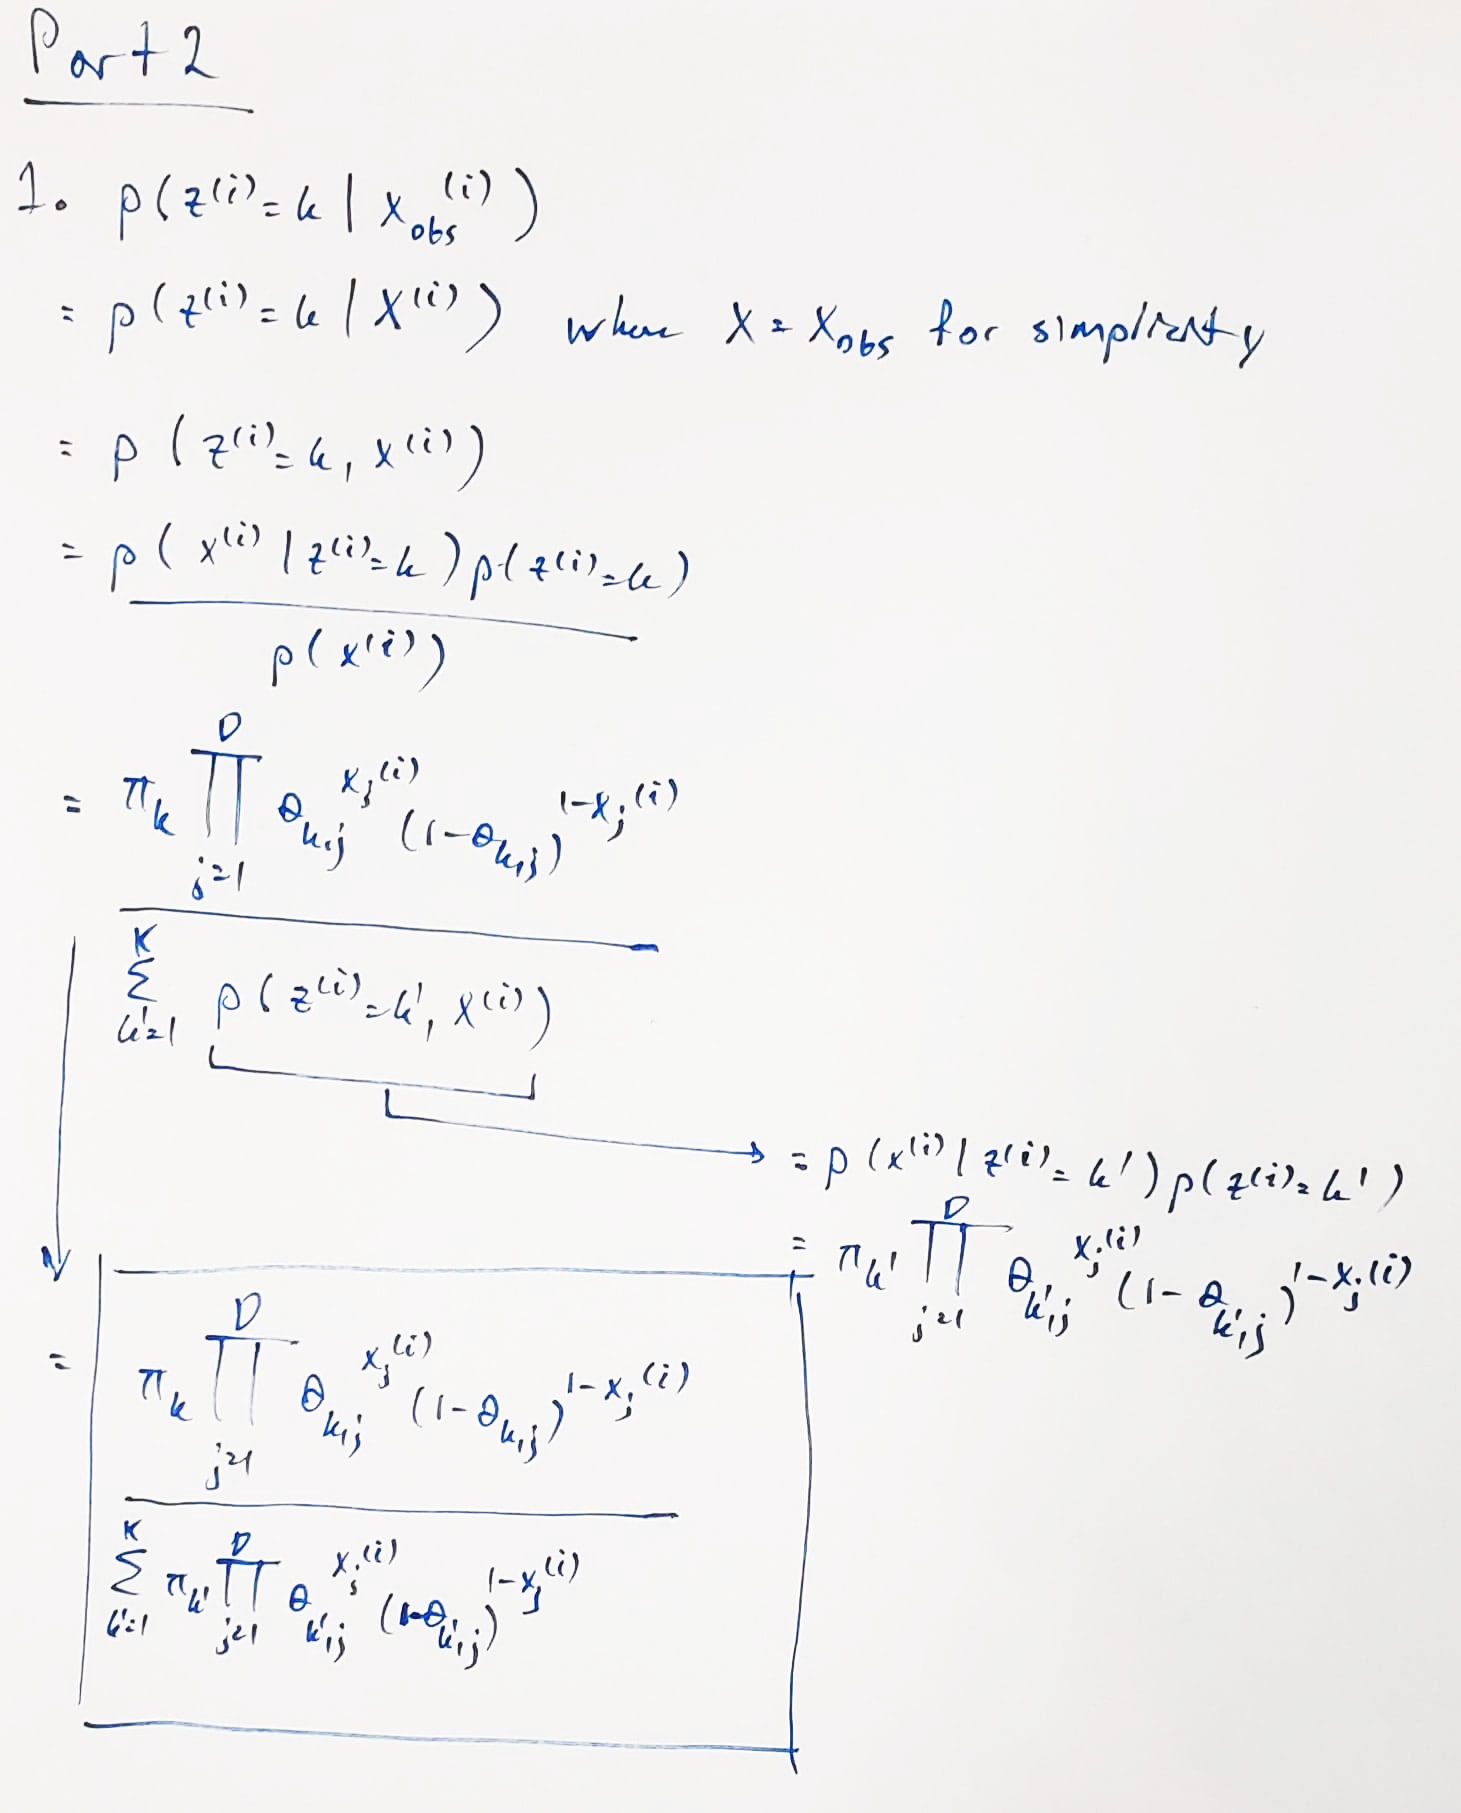 Part 2
1. p(z^(i) = k | x_obs^(i))
= p(z^(i) = k | x^(i)) where x = x_obs for simplicity
= p(z^(i) = k, x^(i))
= p(x^(i) | z^(i) = k) p(z^(i) = k)
p(x^(i))
= π_k ∏_{j=1}^{D} θ_{k,j}^{x_j^(i)} (1-θ_{k,j})^{1-x_j^(i)}
∑_{k'=1}^{K} p(z^(i) = k', x^(i))
= p(x^(i) | z^(i) = k') p(z^(i) = k')
= π_{k'} ∏_{j=1}^{D} θ_{k',j}^{x_j^(i)} (1-θ_{k',j})^{1-x_j^(i)}
= π_k ∏_{j=1}^{D} θ_{k,j}^{x_j^(i)} (1-θ_{k,j})^{1-x_j^(i)}
∑_{k'=1}^{K} π_{k'} ∏_{j=1}^{D} θ_{k',j}^{x_j^(i)} (1-θ_{k',j})^{1-x_j^(i)}